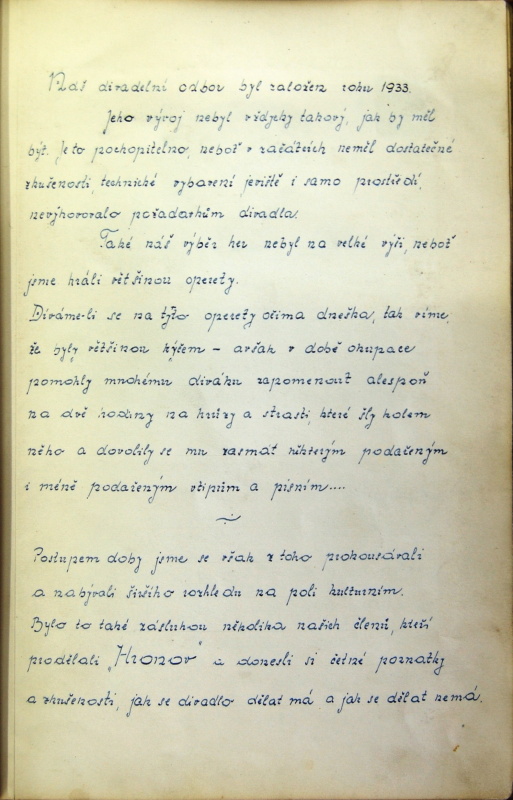 Náš divadelní odbor byl založen roku 1933.
Jeho vývoj nebyl vždycky takový, jak by měl
být. Je to pochopitelno, neboť v začátcích neměl dostatečné
zkušenosti, technické vybavení jeviště i samo prostředí,
nevyhovovalo požadavkům divadla.
Také náš výběr her nebyl na velké výši, neboť
jsme hráli většinou operety.
Díváme-li se na tyto operety očima dneška, tak víme,
že byly většinou kýčem – avšak v době okupace
pomohly mnohému diváku zapomenout alespoň
na dvě hodiny na hrůzy a strasti, které šly kolem
něho a dovolily se mu zasmát některým podařeným
i méně podařeným vtipům a písním....
Postupem doby jsme se však z toho prokousávali
a nabývali širšího rozhledu na poli kulturním.
Bylo to také zásluhou několika našich členů, kteří
prodělali „Hronov" a donesli si četné poznatky
a zkušenosti, jak se divadlo dělat má a jak se dělat nemá.